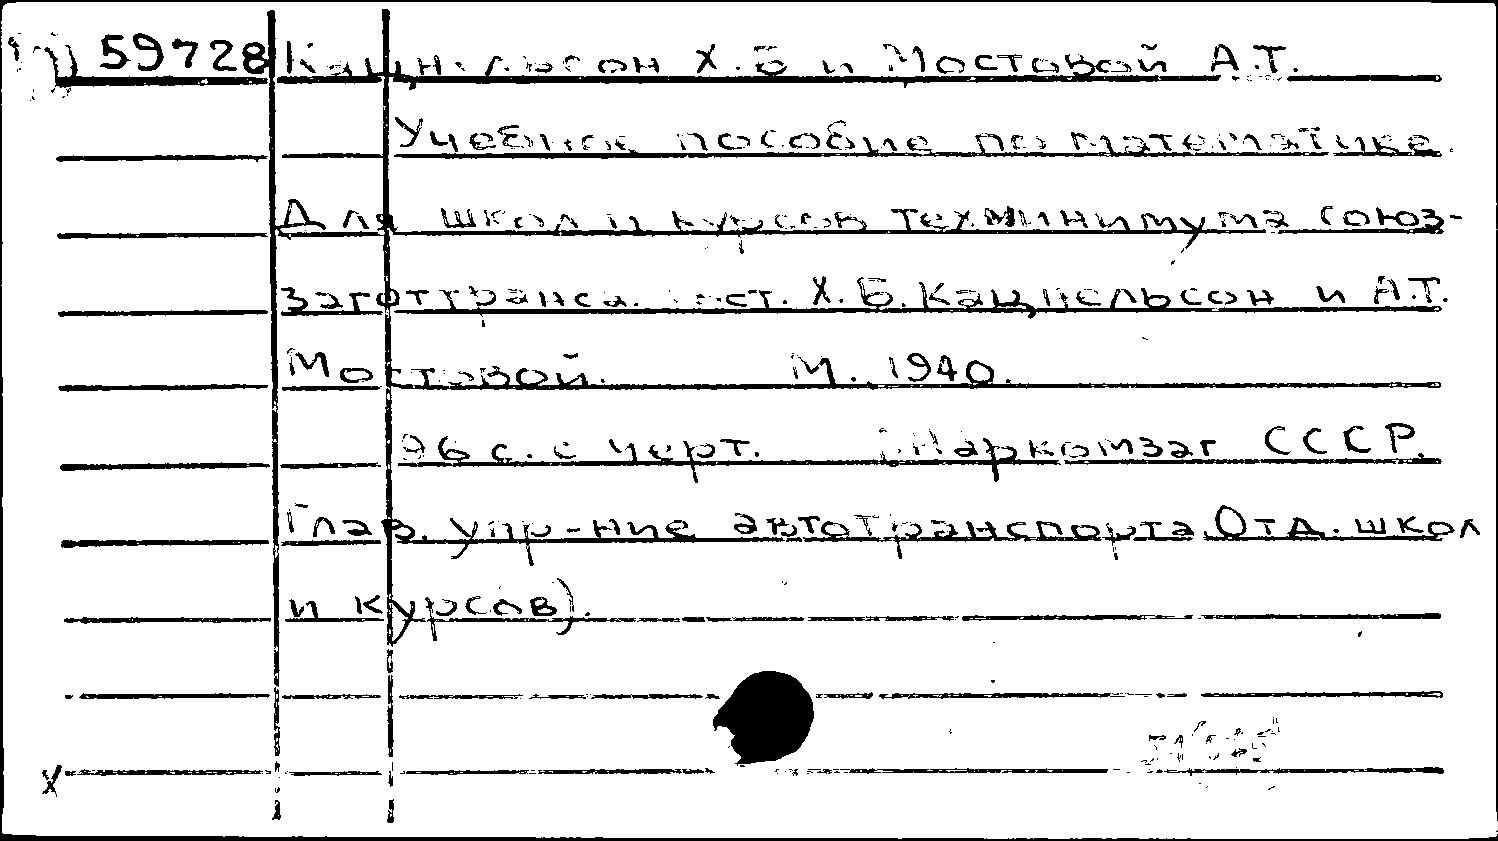 59728 Кацнельсон Х.Б и Мостовой А.Т.
Учебное пособие по математике.
Для школ и курсов техминимума союз-
заготтранса. ст. Х.Б. Кацнельсон и А.Т.
Мостовой. М. 1940.
96 с. с черт. (Наркомзаг СССР.
Глав. упр-ние автотранспорта. Отд. школ
и курсов).
х